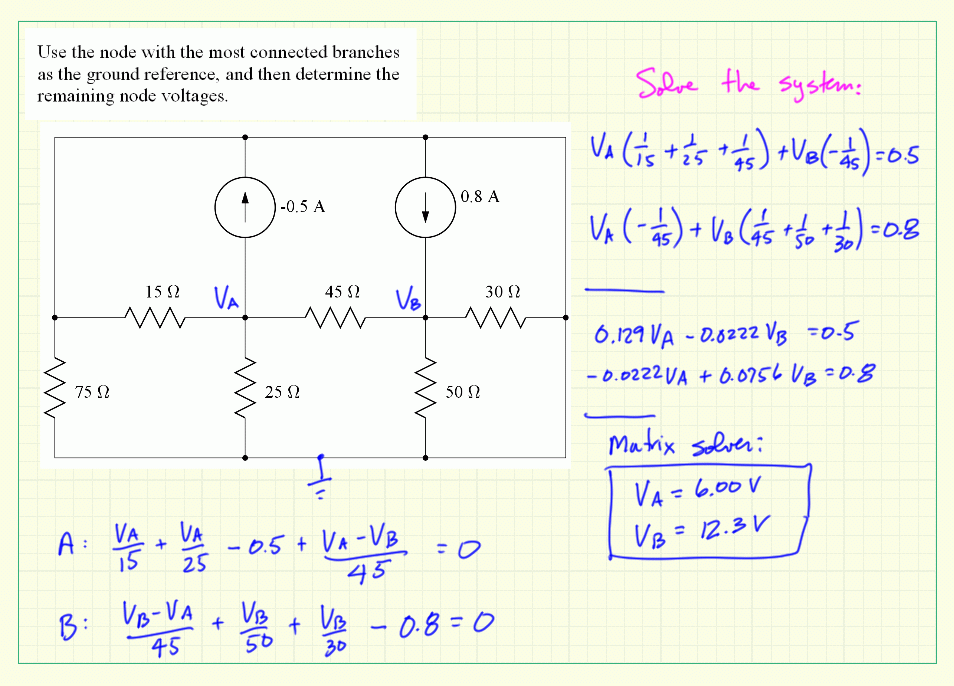 Use the node with the most connected branches
as the ground reference, and then determine the
remaining node voltages.
-0.5 A
0.8 A
15 Ω
V_A
45 Ω
V_B
30 Ω
75 Ω
25 Ω
50 Ω
A: V_A/15 + V_A/25 - 0.5 + (V_A - V_B)/45 = 0
B: (V_B - V_A)/45 + V_B/50 + V_B/30 - 0.8 = 0
Solve the system:
V_A (1/15 + 1/25 + 1/45) + V_B (-1/45) = 0.5
V_A (-1/45) + V_B (1/45 + 1/50 + 1/30) = 0.8
0.129 V_A - 0.0222 V_B = 0.5
-0.0222 V_A + 0.0756 V_B = 0.8
Matrix solver:
V_A = 6.00 V
V_B = 12.3 V